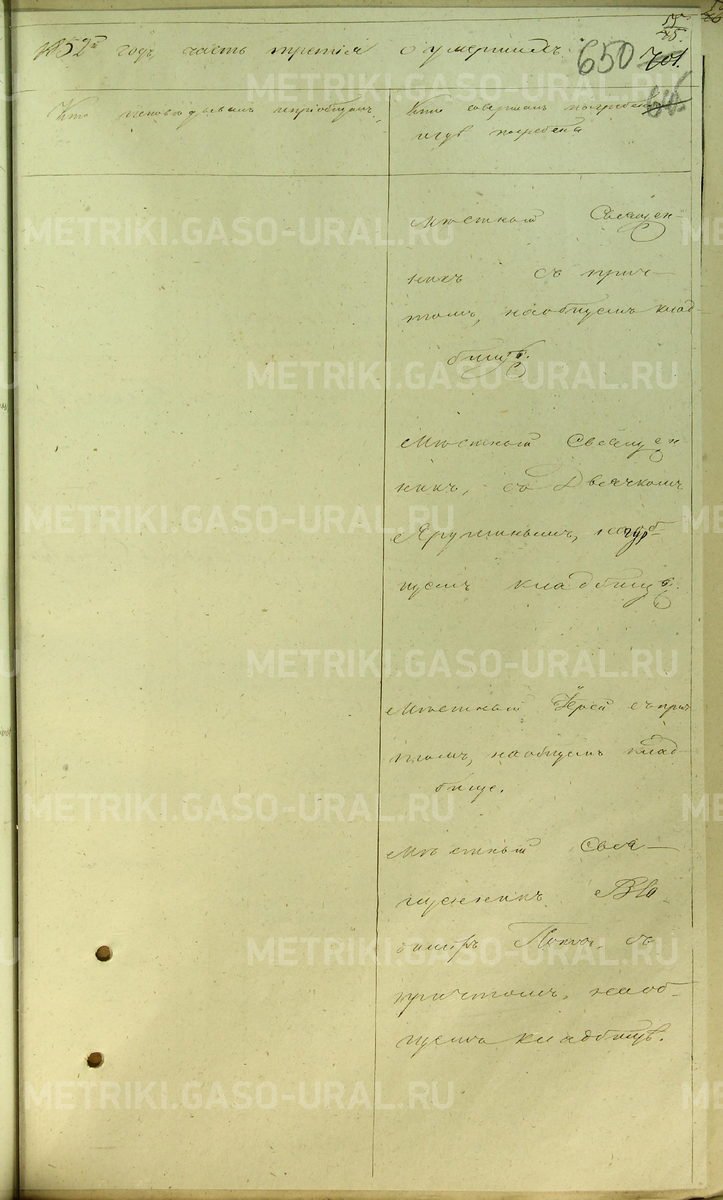 1852й годъ часть третія о умершихъ
650
55
Кто исповѣдывалъ и пріобщалъ.
Кто совершалъ погребеніе
и гдѣ погребены
Мѣстный Священ-
никъ съ прич-
томъ, на общемъ клад-
бищѣ.
Мѣстный Священ
никъ, съ Дьячкомъ
на об-
щемъ кладбищѣ.
Мѣстный Іерей съ прич
томъ, на общемъ клад-
бище.
Мѣстный Свя-
щенникъ Вла-
димиръ Попов. съ
причтомъ, на об-
щемъ кладбищѣ.
METRIKI.GASO-URAL.RU